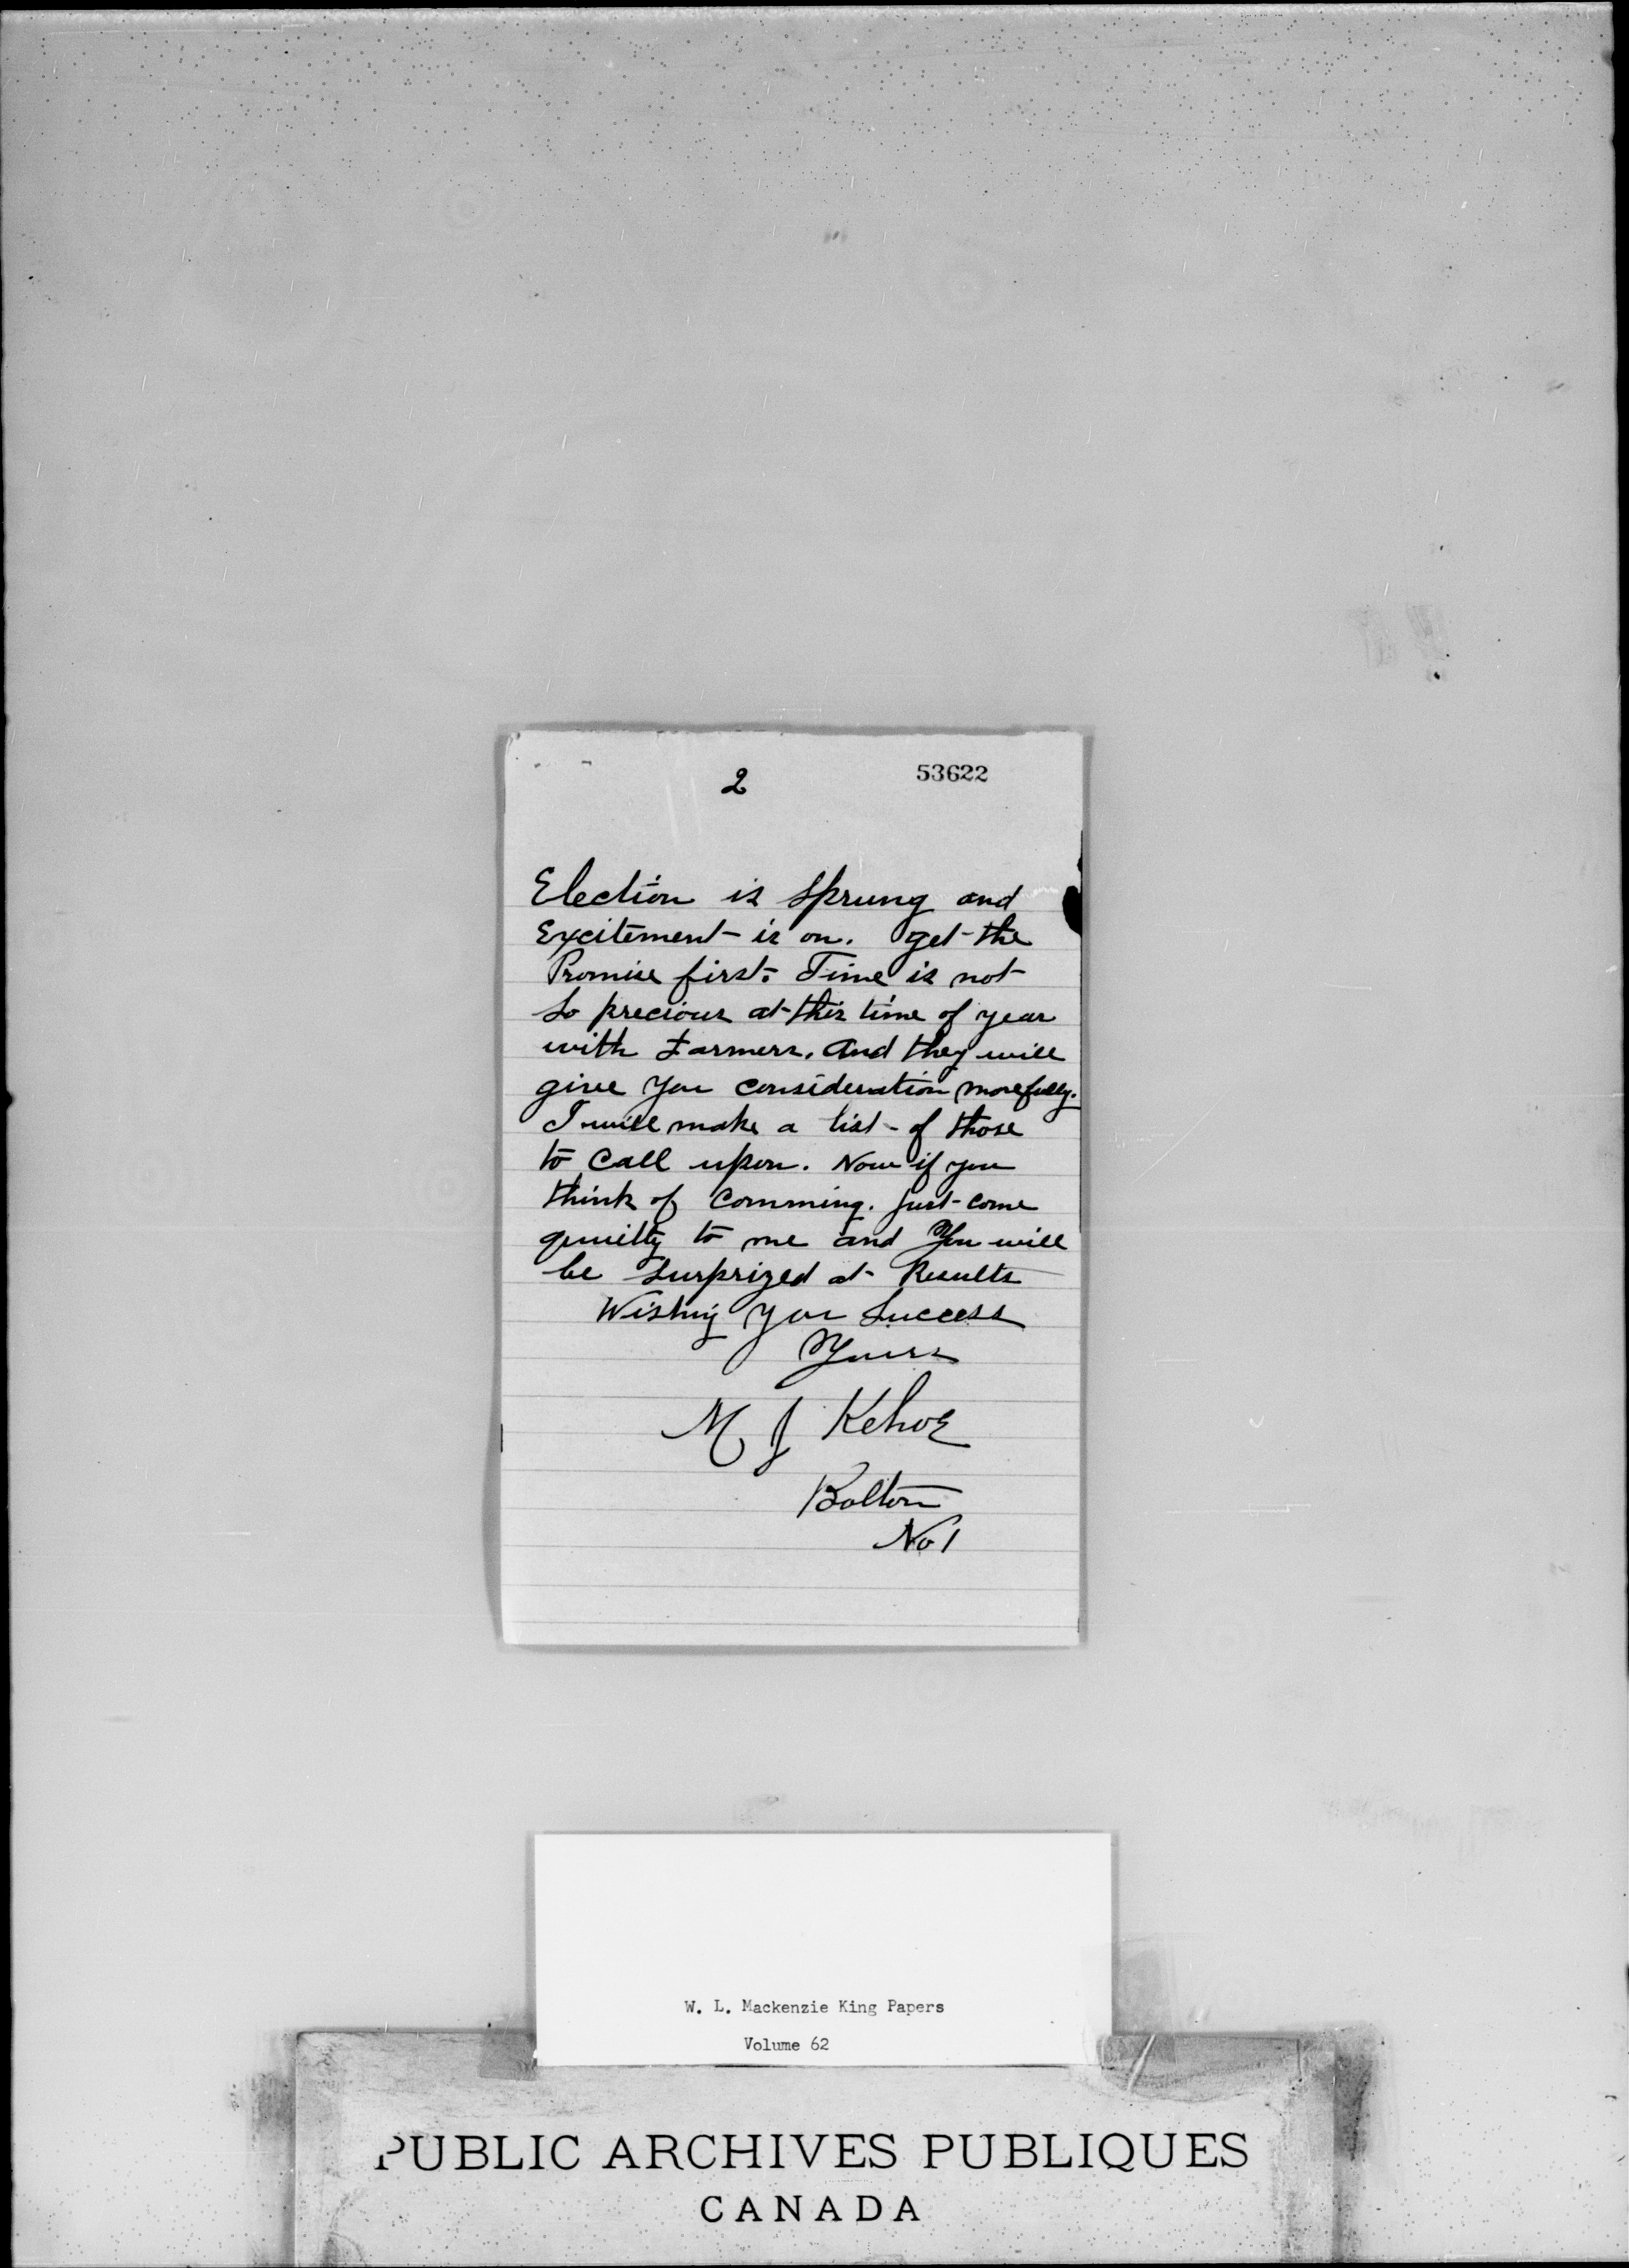 2
53622
Election is Sprung and
Excitement is on. get the
Promise first. Time is not
So precious at this time of year
with Farmers. And they will
give you consideration more fully.
I will make a list of those
to Call upon. Now if you
think of Comming. just come
quuilty to me and You will
be Surprized at Results
Wishing you Success
Yours
M J Kehoe
Bolton
No 1
W. L. Mackenzie King Papers
Volume 62
PUBLIC ARCHIVES PUBLIQUES
CANADA